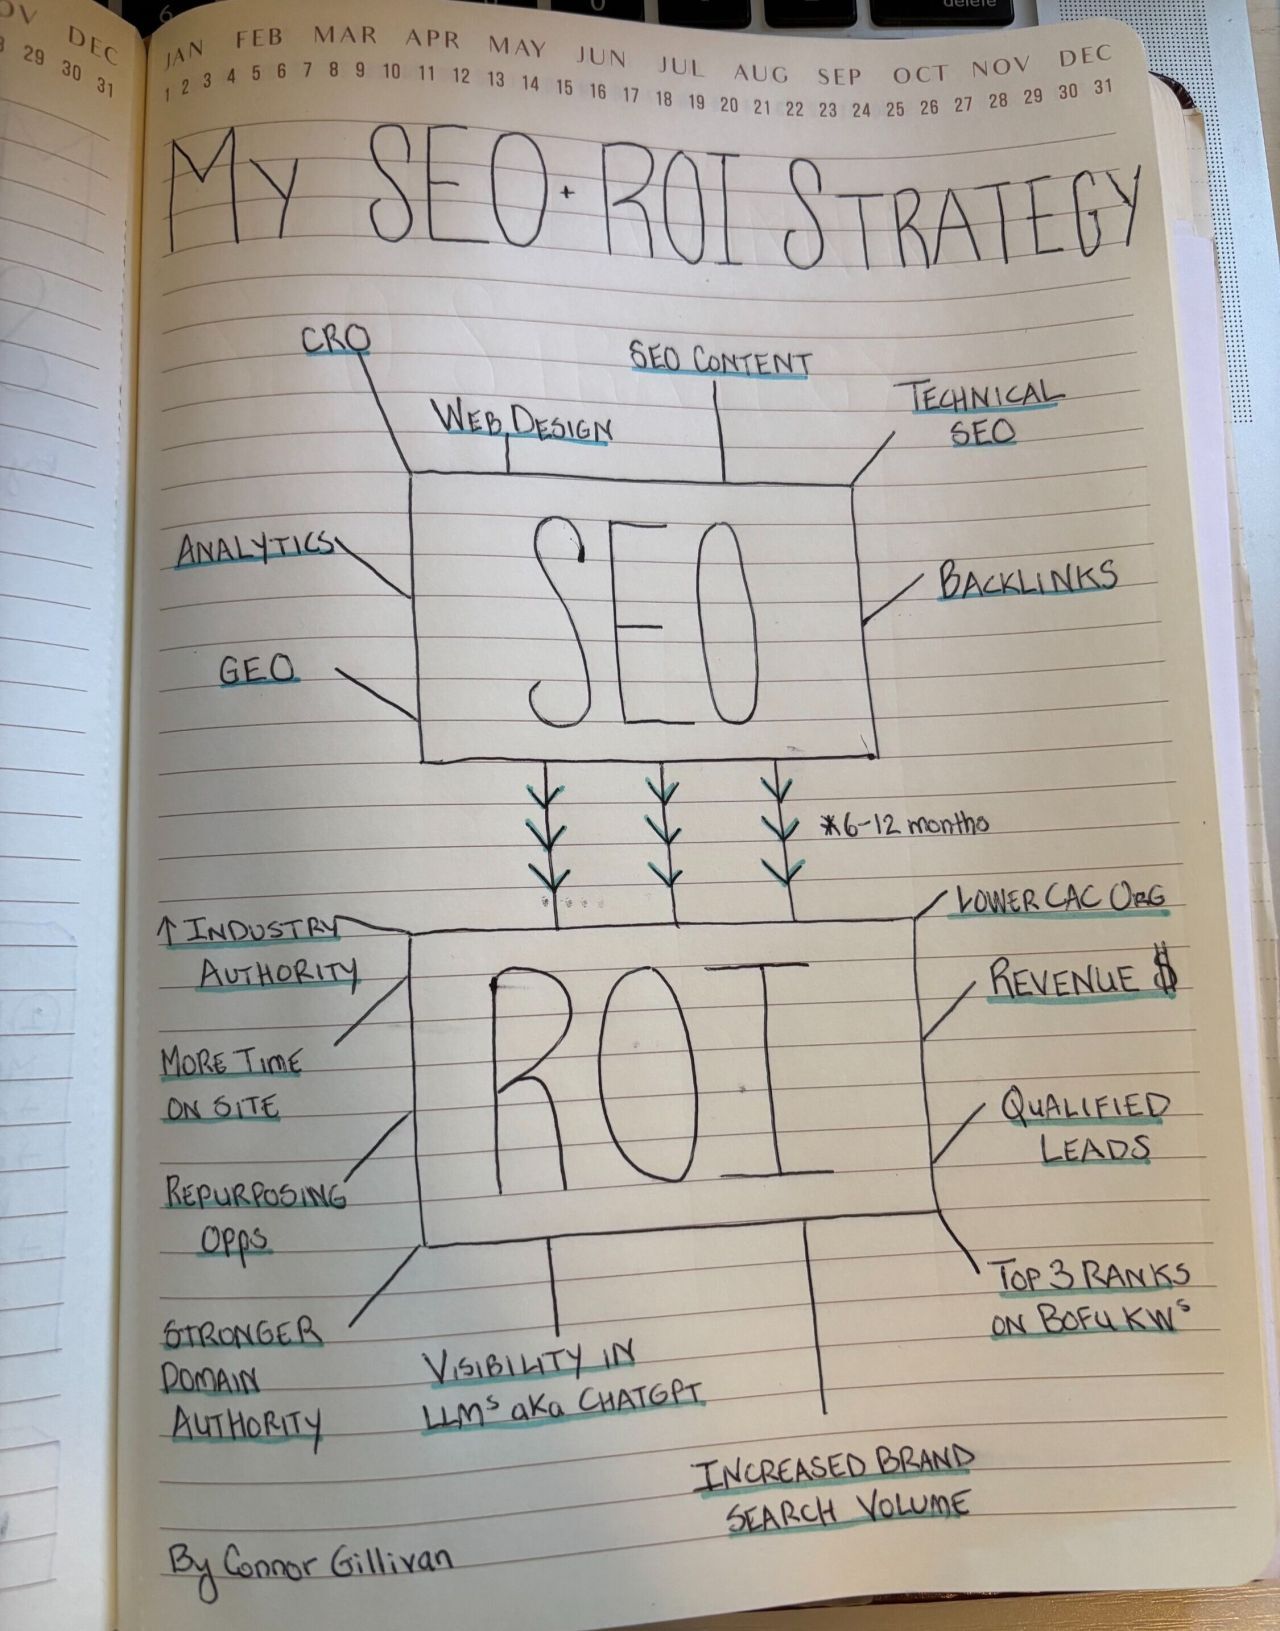 delete
6
OV
DEC
29 30 31
JAN FEB MAR APR MAY JUN JUL AUG SEP OCT NOV DEC
1 2 3 4 5 6 7 8 9 10 11 12 13 14 15 16 17 18 19 20 21 22 23 24 25 26 27 28 29 30 31
MY SEO + ROI STRATEGY
CRO
SEO CONTENT
WEB DESIGN
TECHNICAL
SEO
ANALYTICS
SEO
BACKLINKS
GEO
*6-12 months
↑ INDUSTRY
AUTHORITY
LOWER CAC ORG
REVENUE $
MORE TIME
ON SITE
ROI
QUALIFIED
LEADS
REPURPOSING
OPPS
TOP 3 RANKS
ON BOFU KWs
STRONGER
DOMAIN
AUTHORITY
VISIBILITY IN
LLMs aka CHATGPT
INCREASED BRAND
SEARCH VOLUME
By Connor Gillivan